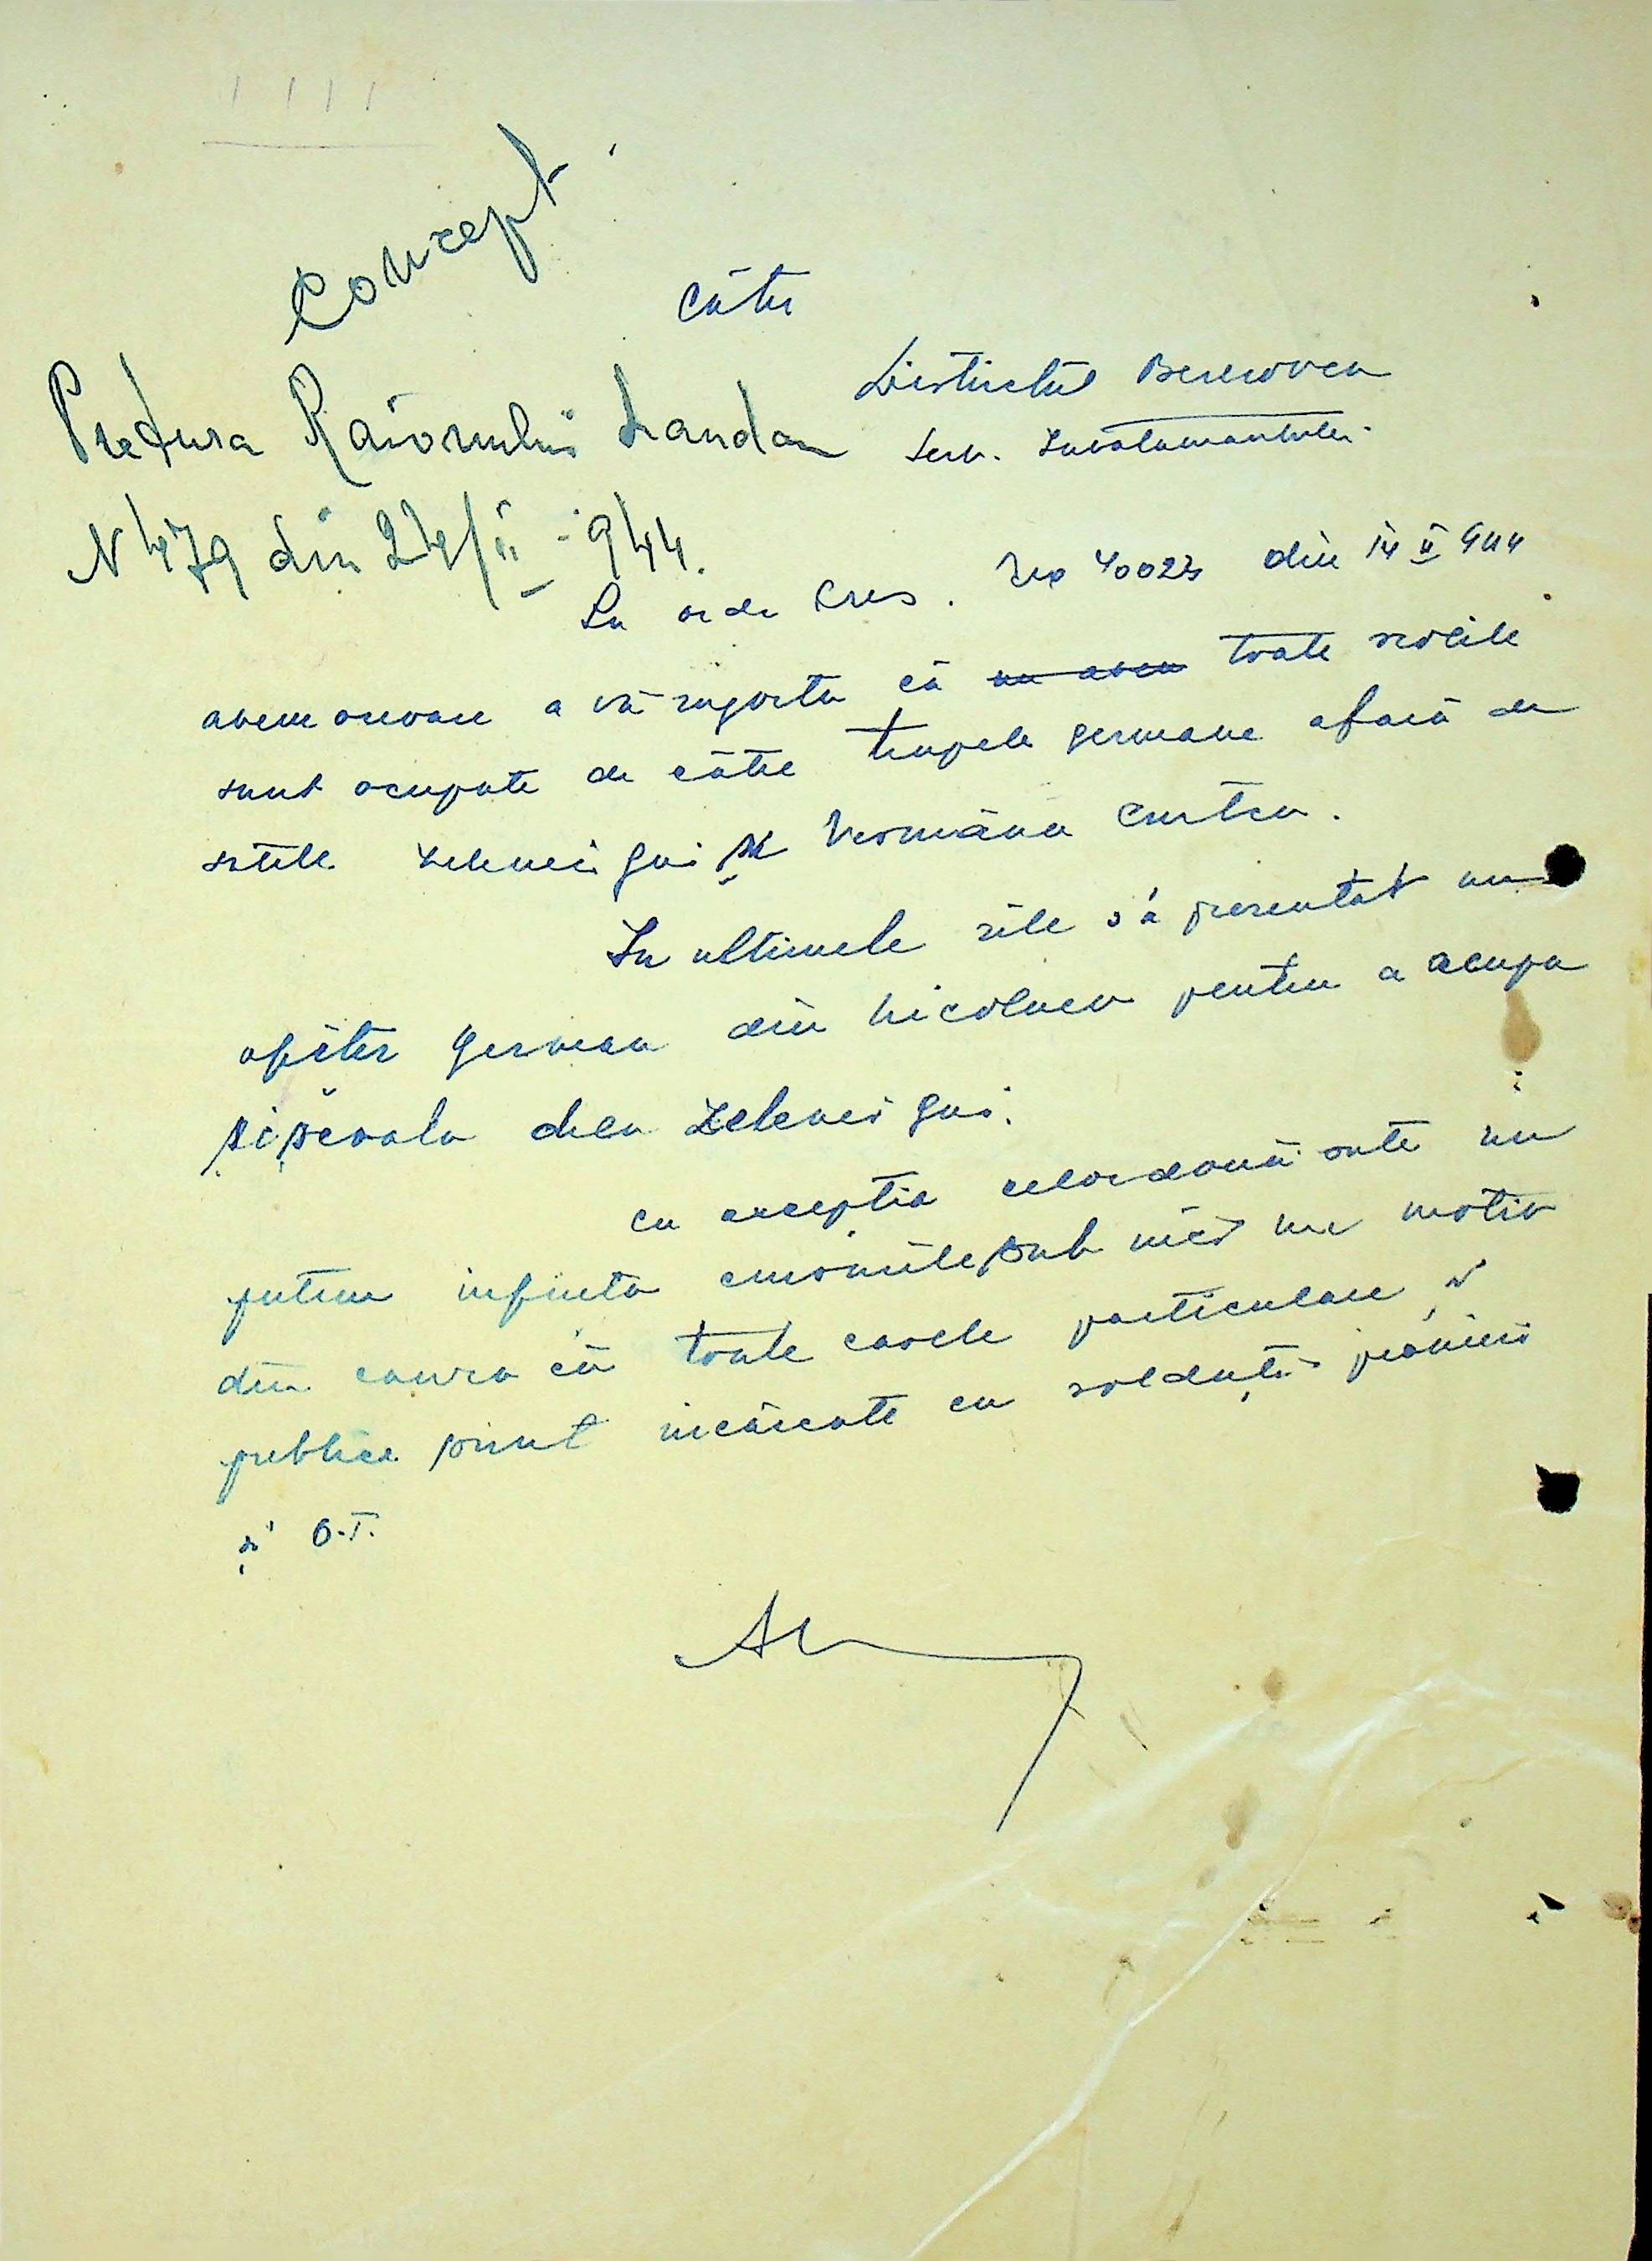 Concept
Către
Pretura Raionului Landau
Districtul Berezovca
Serv. Invatamantului
N 479 din 24/II - 944.
La ord. Cres. No 40023 din 14 II 944
avem onoare a vă raporta că nu avem toate scolile
sunt ocupate de către trupele germane afară de
satele Zelenei gai și
In ultimele zile s'a prezentat un
ofiter german din Nicolaev pentru a ocupa
și școala dela Zelenei gai.
cu exceptia celor două sate nu
putem infiinta căminile sub nici un motiv
din cauza că toate casele particulare și
publice sunt incărcate cu soldați români
și O.T.